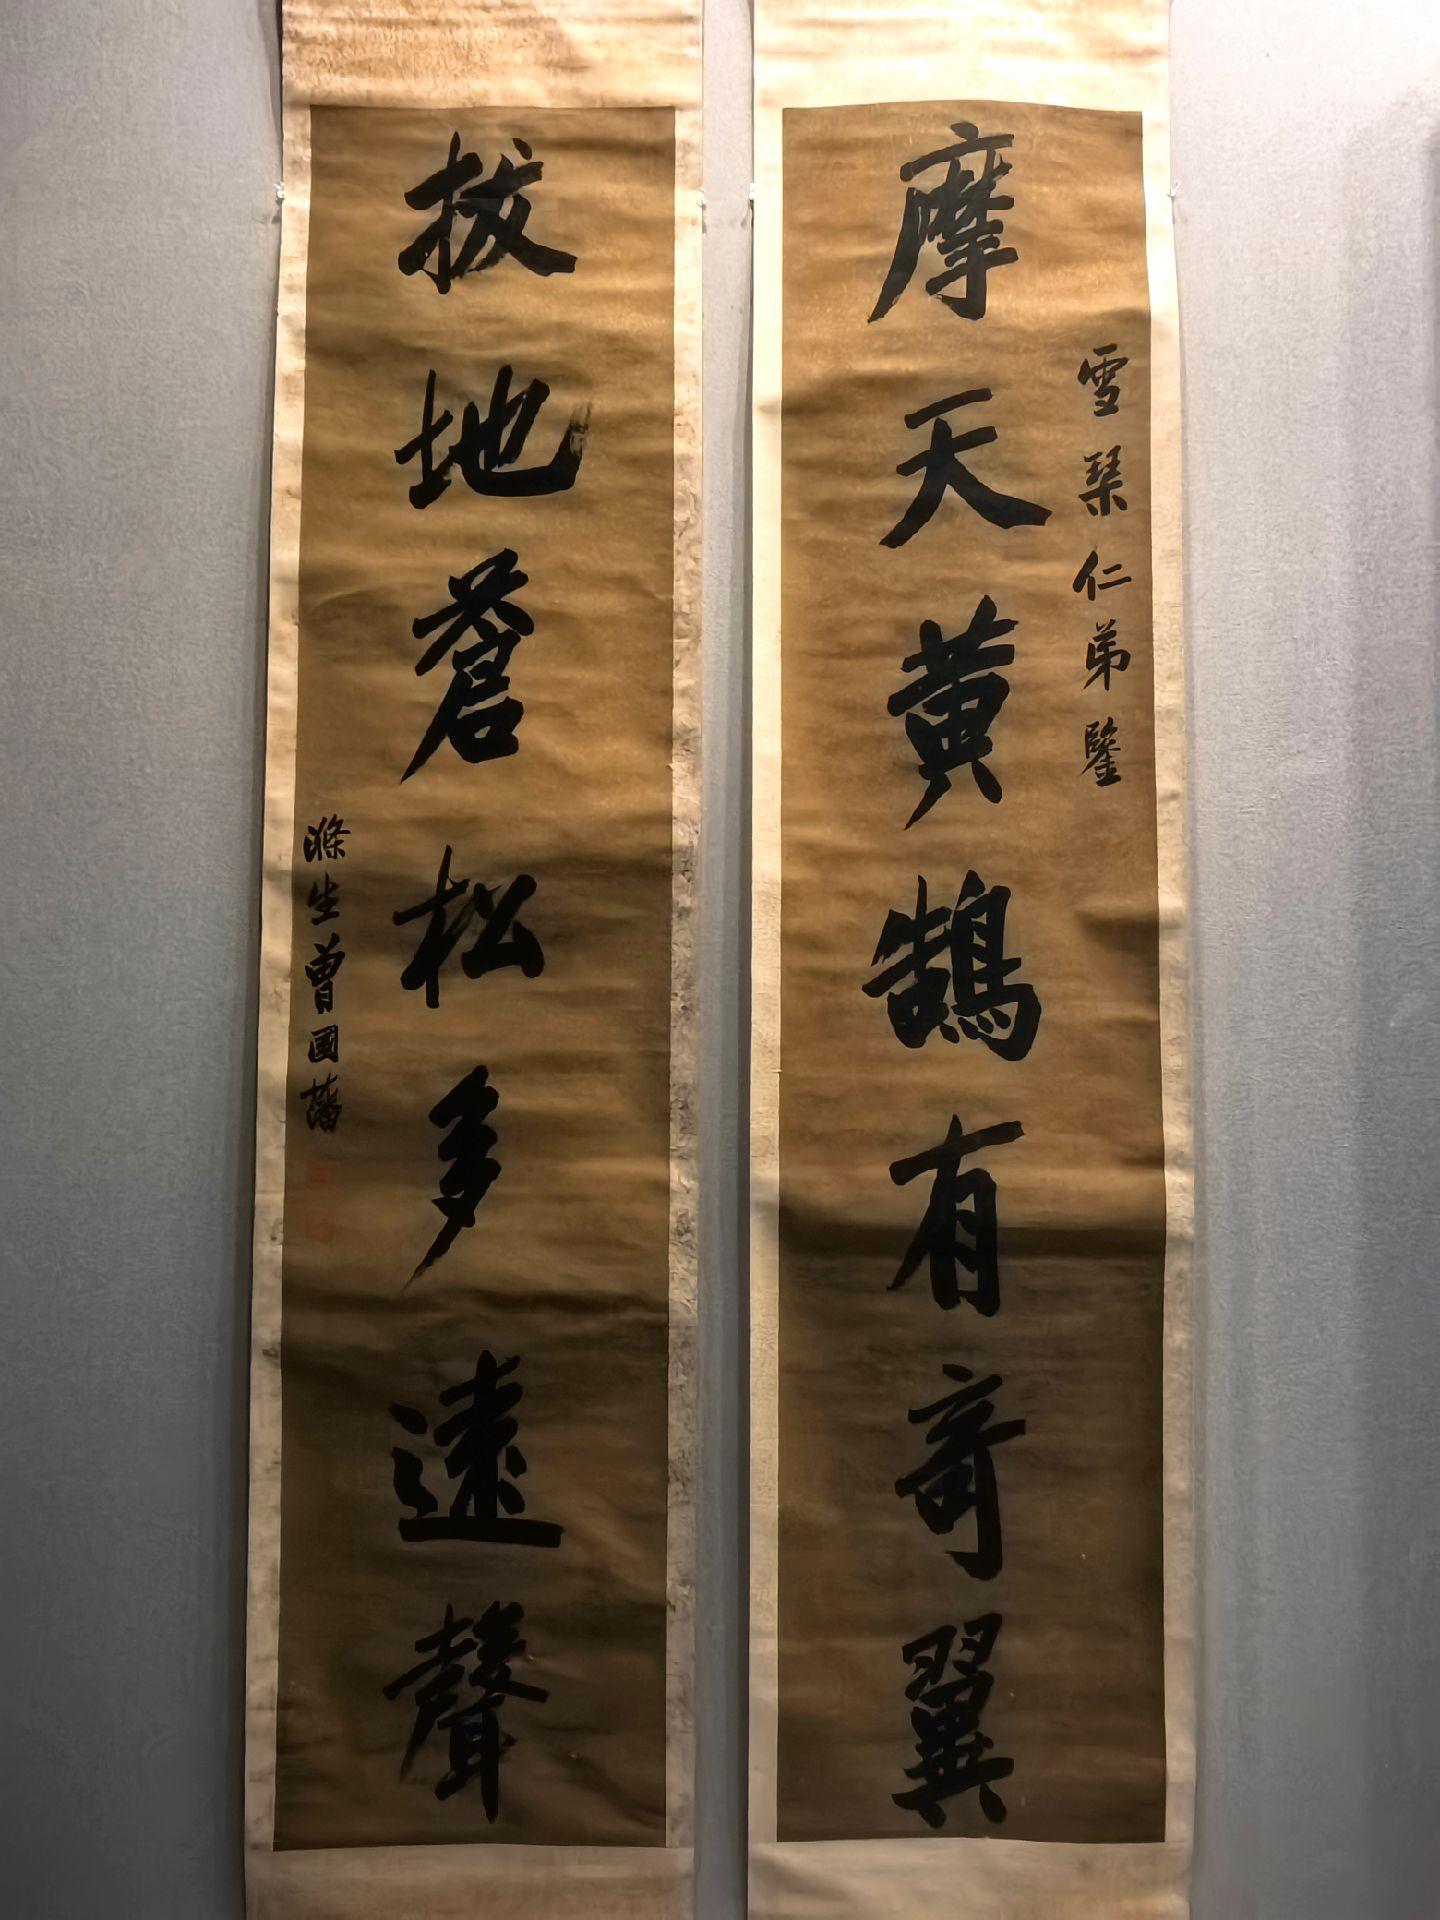 雪琴仁弟鑒
摩天黃鵠有奇翼
拔地蒼松多遠聲
滌生曾國藩